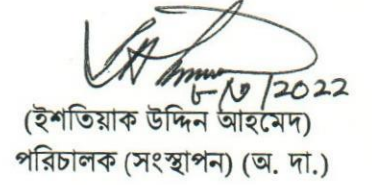 ৮/৩/2022
(ইশতিয়াক উদ্দিন আহমেদ)
পরিচালক (সংস্থাপন) (অ. দা.)